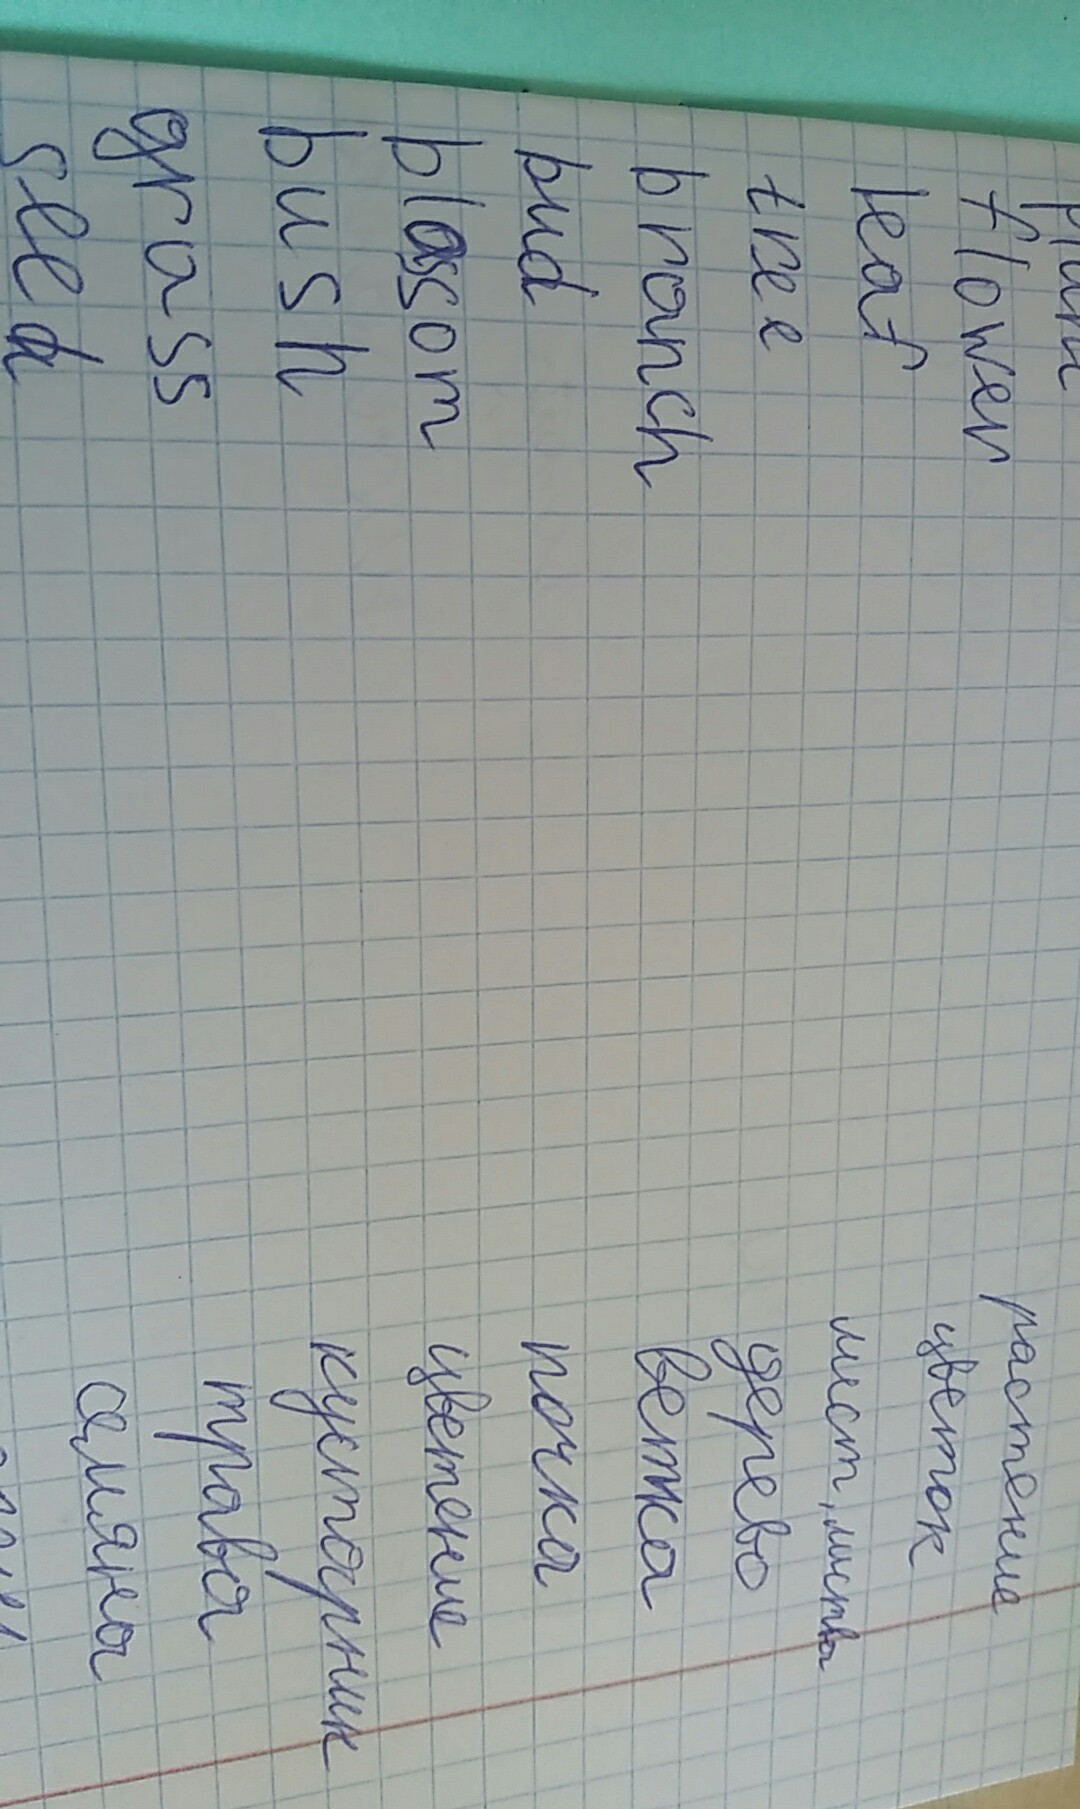 plant растение
flower цветок
leaf лист, листва
tree дерево
branch ветка
bud почка
blossom цветение
bush кустарник
grass трава
seed семяна